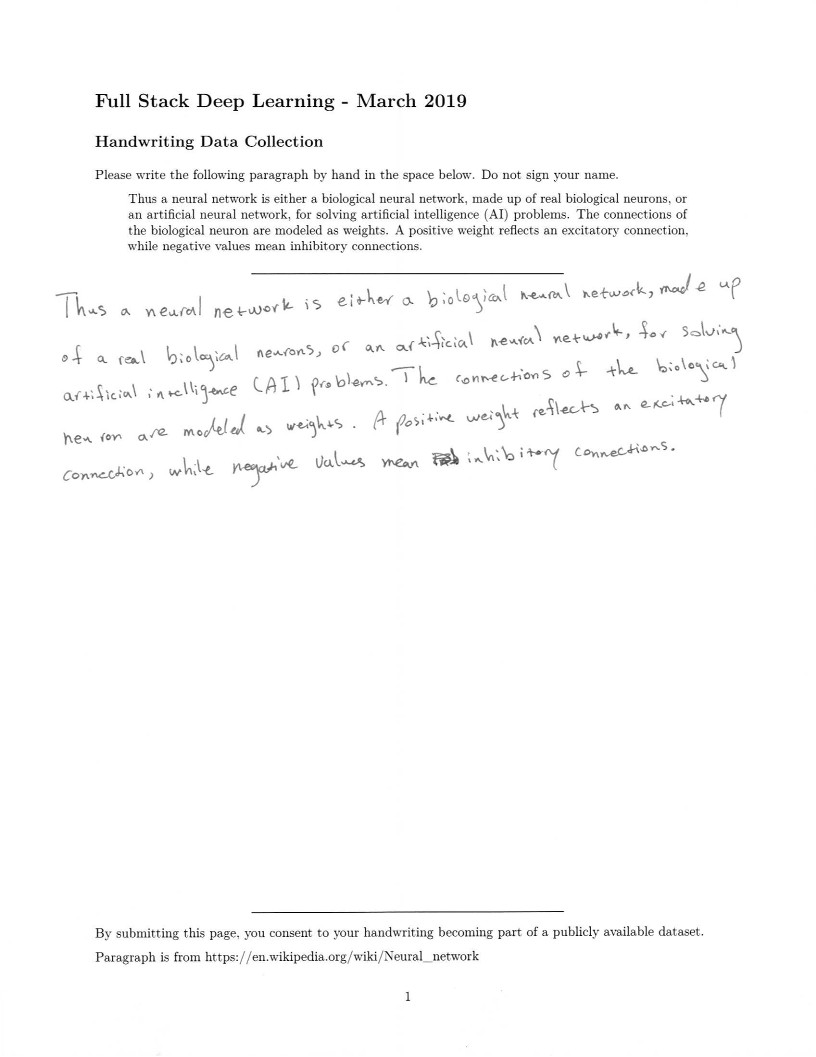 Full Stack Deep Learning - March 2019
Handwriting Data Collection
Please write the following paragraph by hand in the space below. Do not sign your name.
Thus a neural network is either a biological neural network, made up of real biological neurons, or
an artificial neural network, for solving artificial intelligence (AI) problems. The connections of
the biological neuron are modeled as weights. A positive weight reflects an excitatory connection,
while negative values mean inhibitory connections.
Thus a neural network is either a biological neural network, made up
of a real biological neurons, or an artificial neural network, for solving
artificial intelligence (AI) problems. The connections of the biological
neuron are modeled as weights. A positive weight reflects an excitatory
connection, while negative values mean inhibitory connections.
By submitting this page, you consent to your handwriting becoming part of a publicly available dataset.
Paragraph is from https://en.wikipedia.org/wiki/Neural_network
1